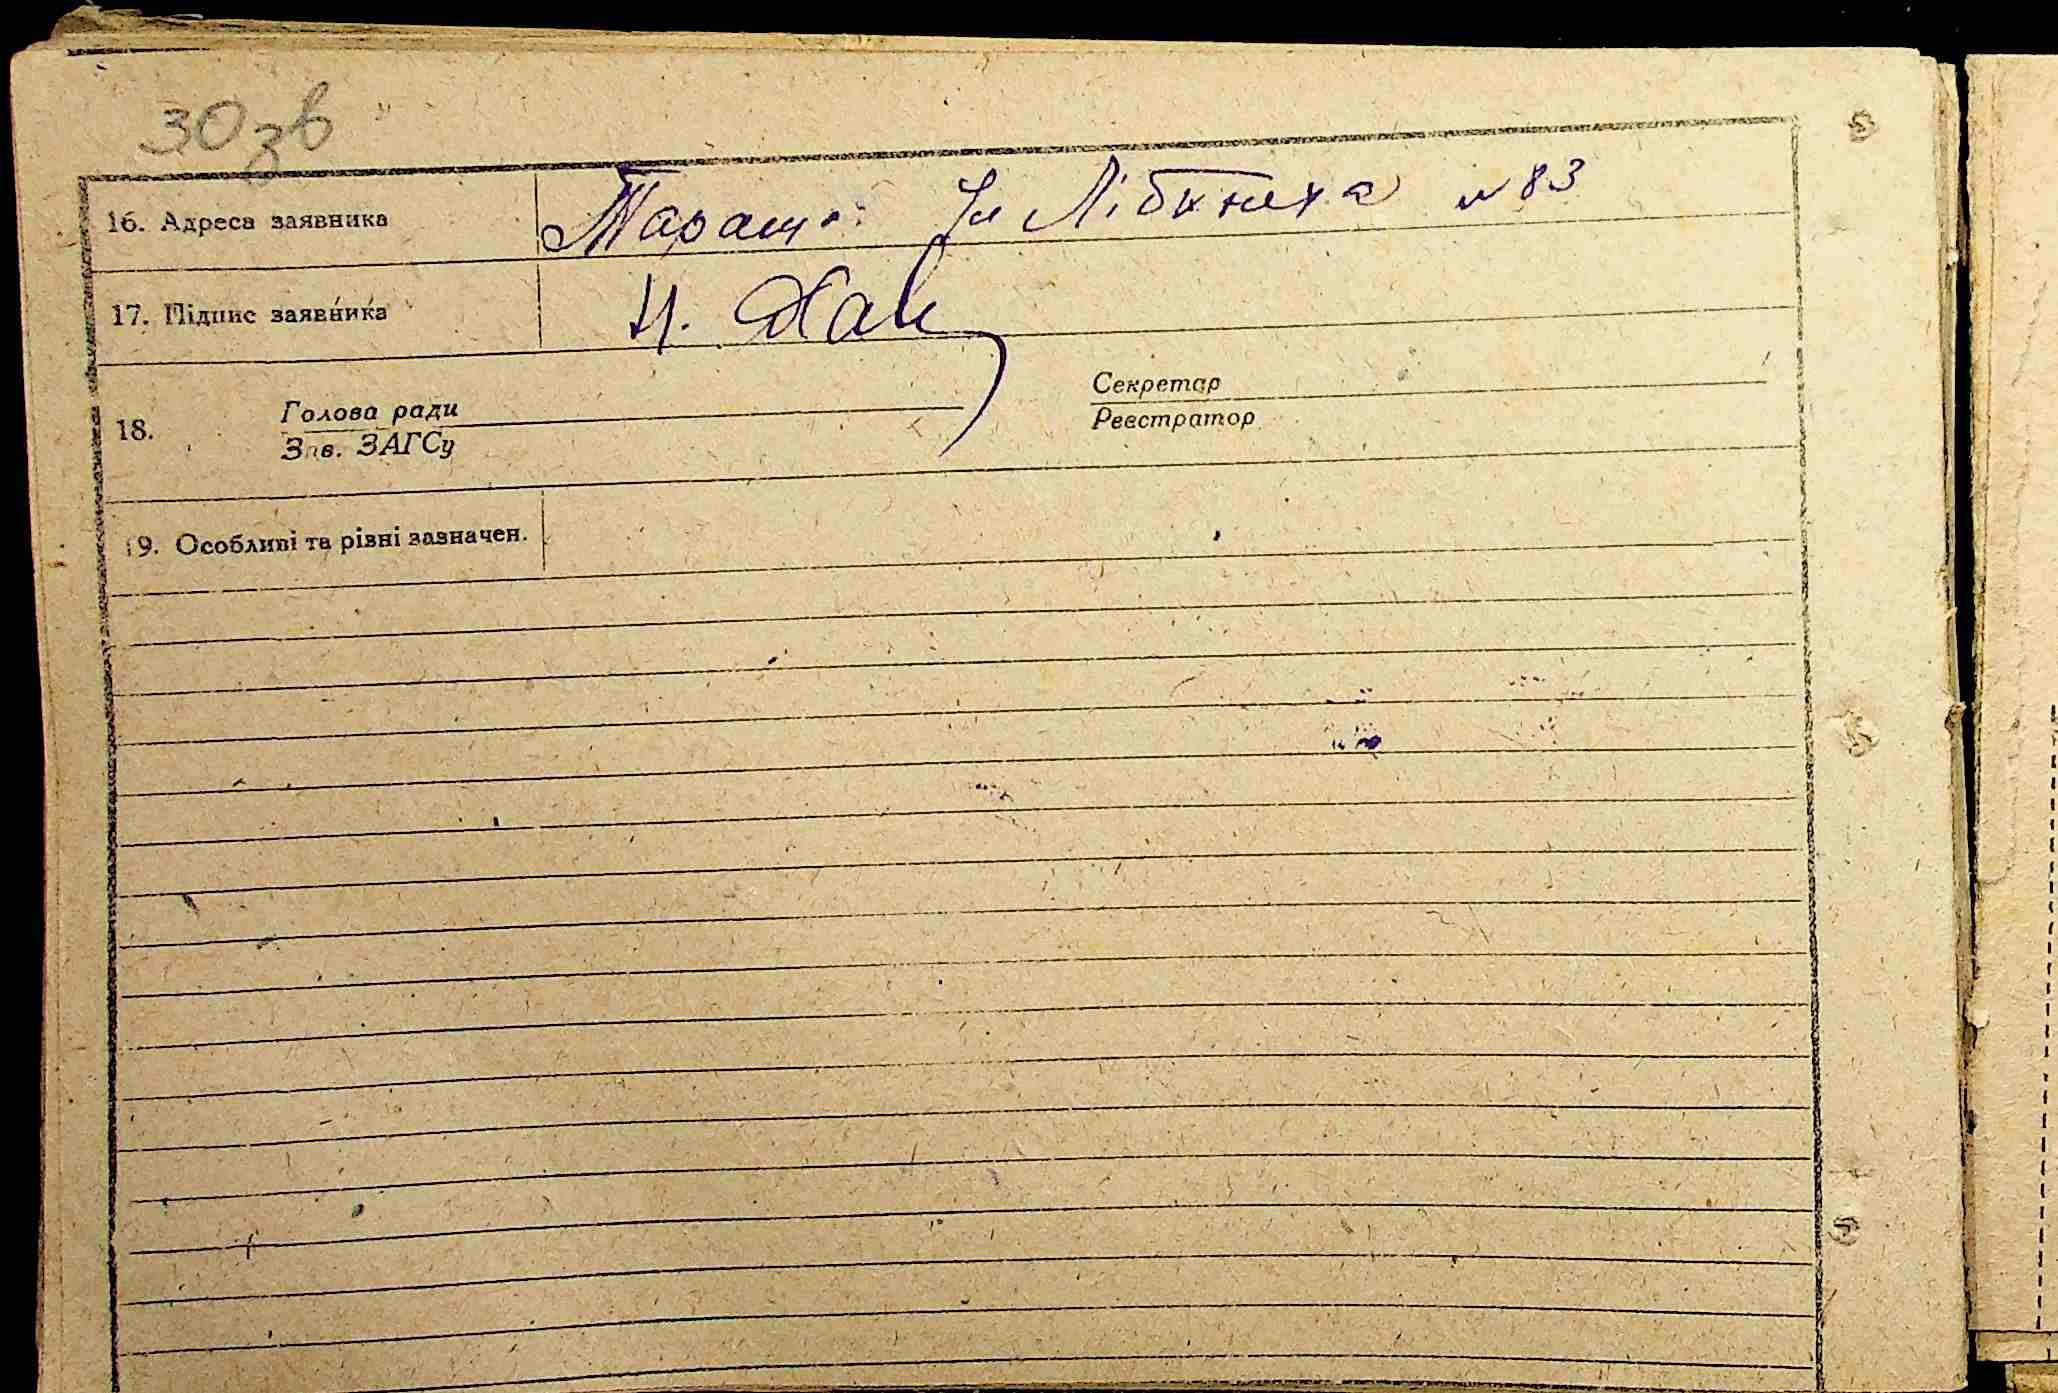 30зв
16. Адреса заявника Тараща Ул Лібкнехта № 83
17. Підпис заявника
18. Голова ради Секретар
Зав. ЗАГСу Реєстратор
19. Особливі та різні зазначен.